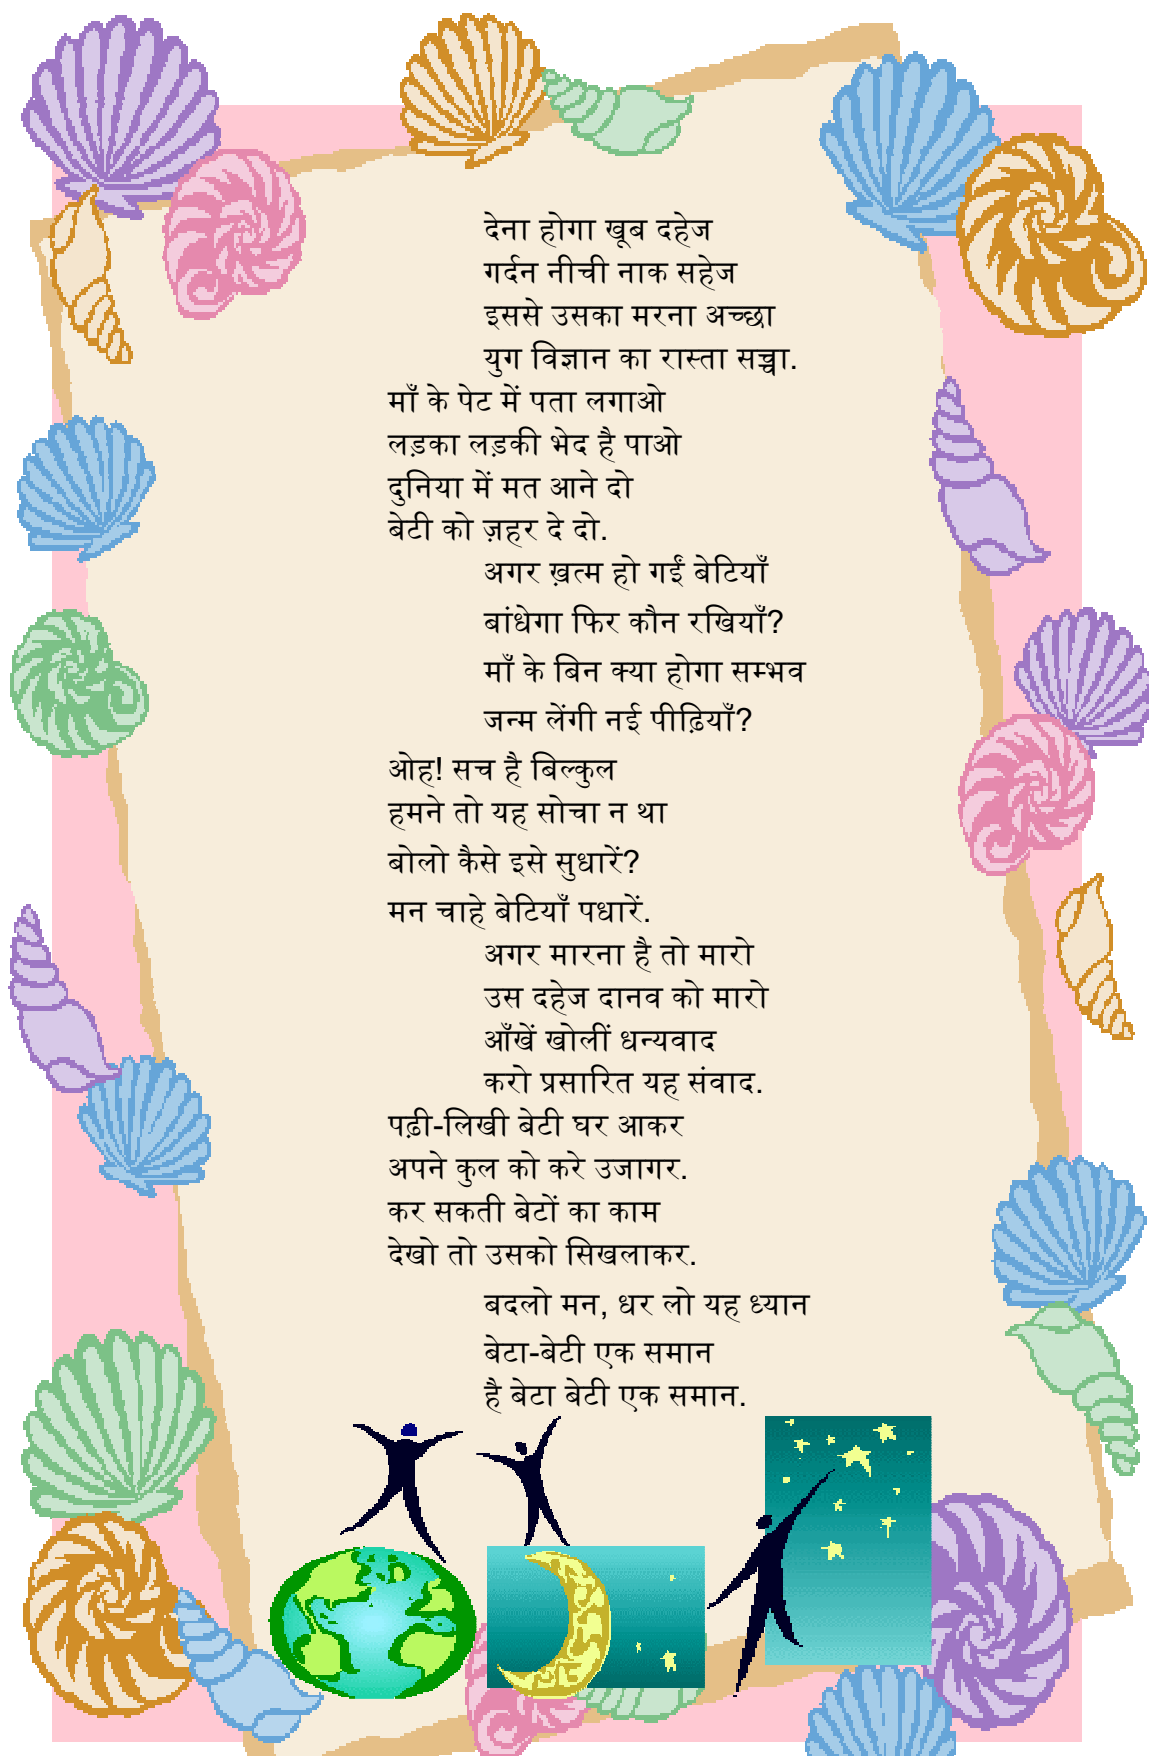 देना होगा खूब दहेज
गर्दन नीची नाक सहेज
इससे उसका मरना अच्छा
युग विज्ञान का रास्ता सच्चा.
माँ के पेट में पता लगाओ
लड़का लड़की भेद है पाओ
दुनिया में मत आने दो
बेटी को ज़हर दे दो.
अगर ख़त्म हो गईं बेटियाँ
बांधेगा फिर कौन रखियाँ?
माँ के बिन क्या होगा सम्भव
जन्म लेंगी नई पीढ़ियाँ?
ओह! सच है बिल्कुल
हमने तो यह सोचा न था
बोलो कैसे इसे सुधारें?
मन चाहे बेटियाँ पधारें.
अगर मारना है तो मारो
उस दहेज दानव को मारो
आँखें खोलीं धन्यवाद
करो प्रसारित यह संवाद.
पढ़ी-लिखी बेटी घर आकर
अपने कुल को करे उजागर.
कर सकती बेटों का काम
देखो तो उसको सिखलाकर.
बदलो मन, धर लो यह ध्यान
बेटा-बेटी एक समान
है बेटा बेटी एक समान.